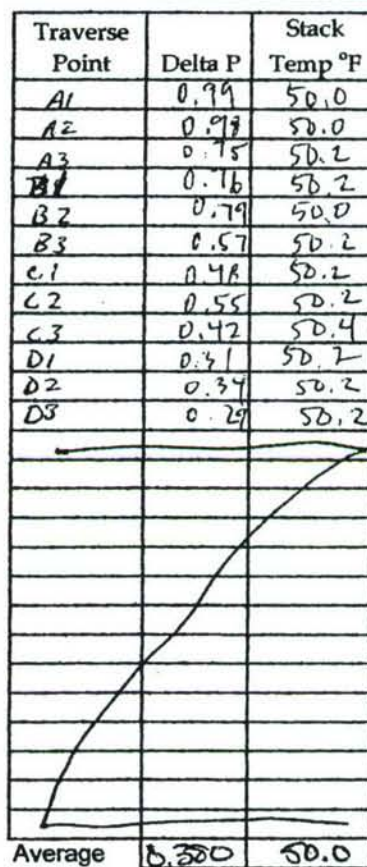 Traverse Point Delta P Stack Temp °F
A1 0.99 50.0
A2 0.98 50.0
A3 0.75 50.2
B1 0.76 50.2
B2 0.79 50.0
B3 0.57 50.2
C1 0.48 50.2
C2 0.55 50.2
C3 0.42 50.4
D1 0.31 50.2
D2 0.34 50.2
D3 0.29 50.2
Average 50.0